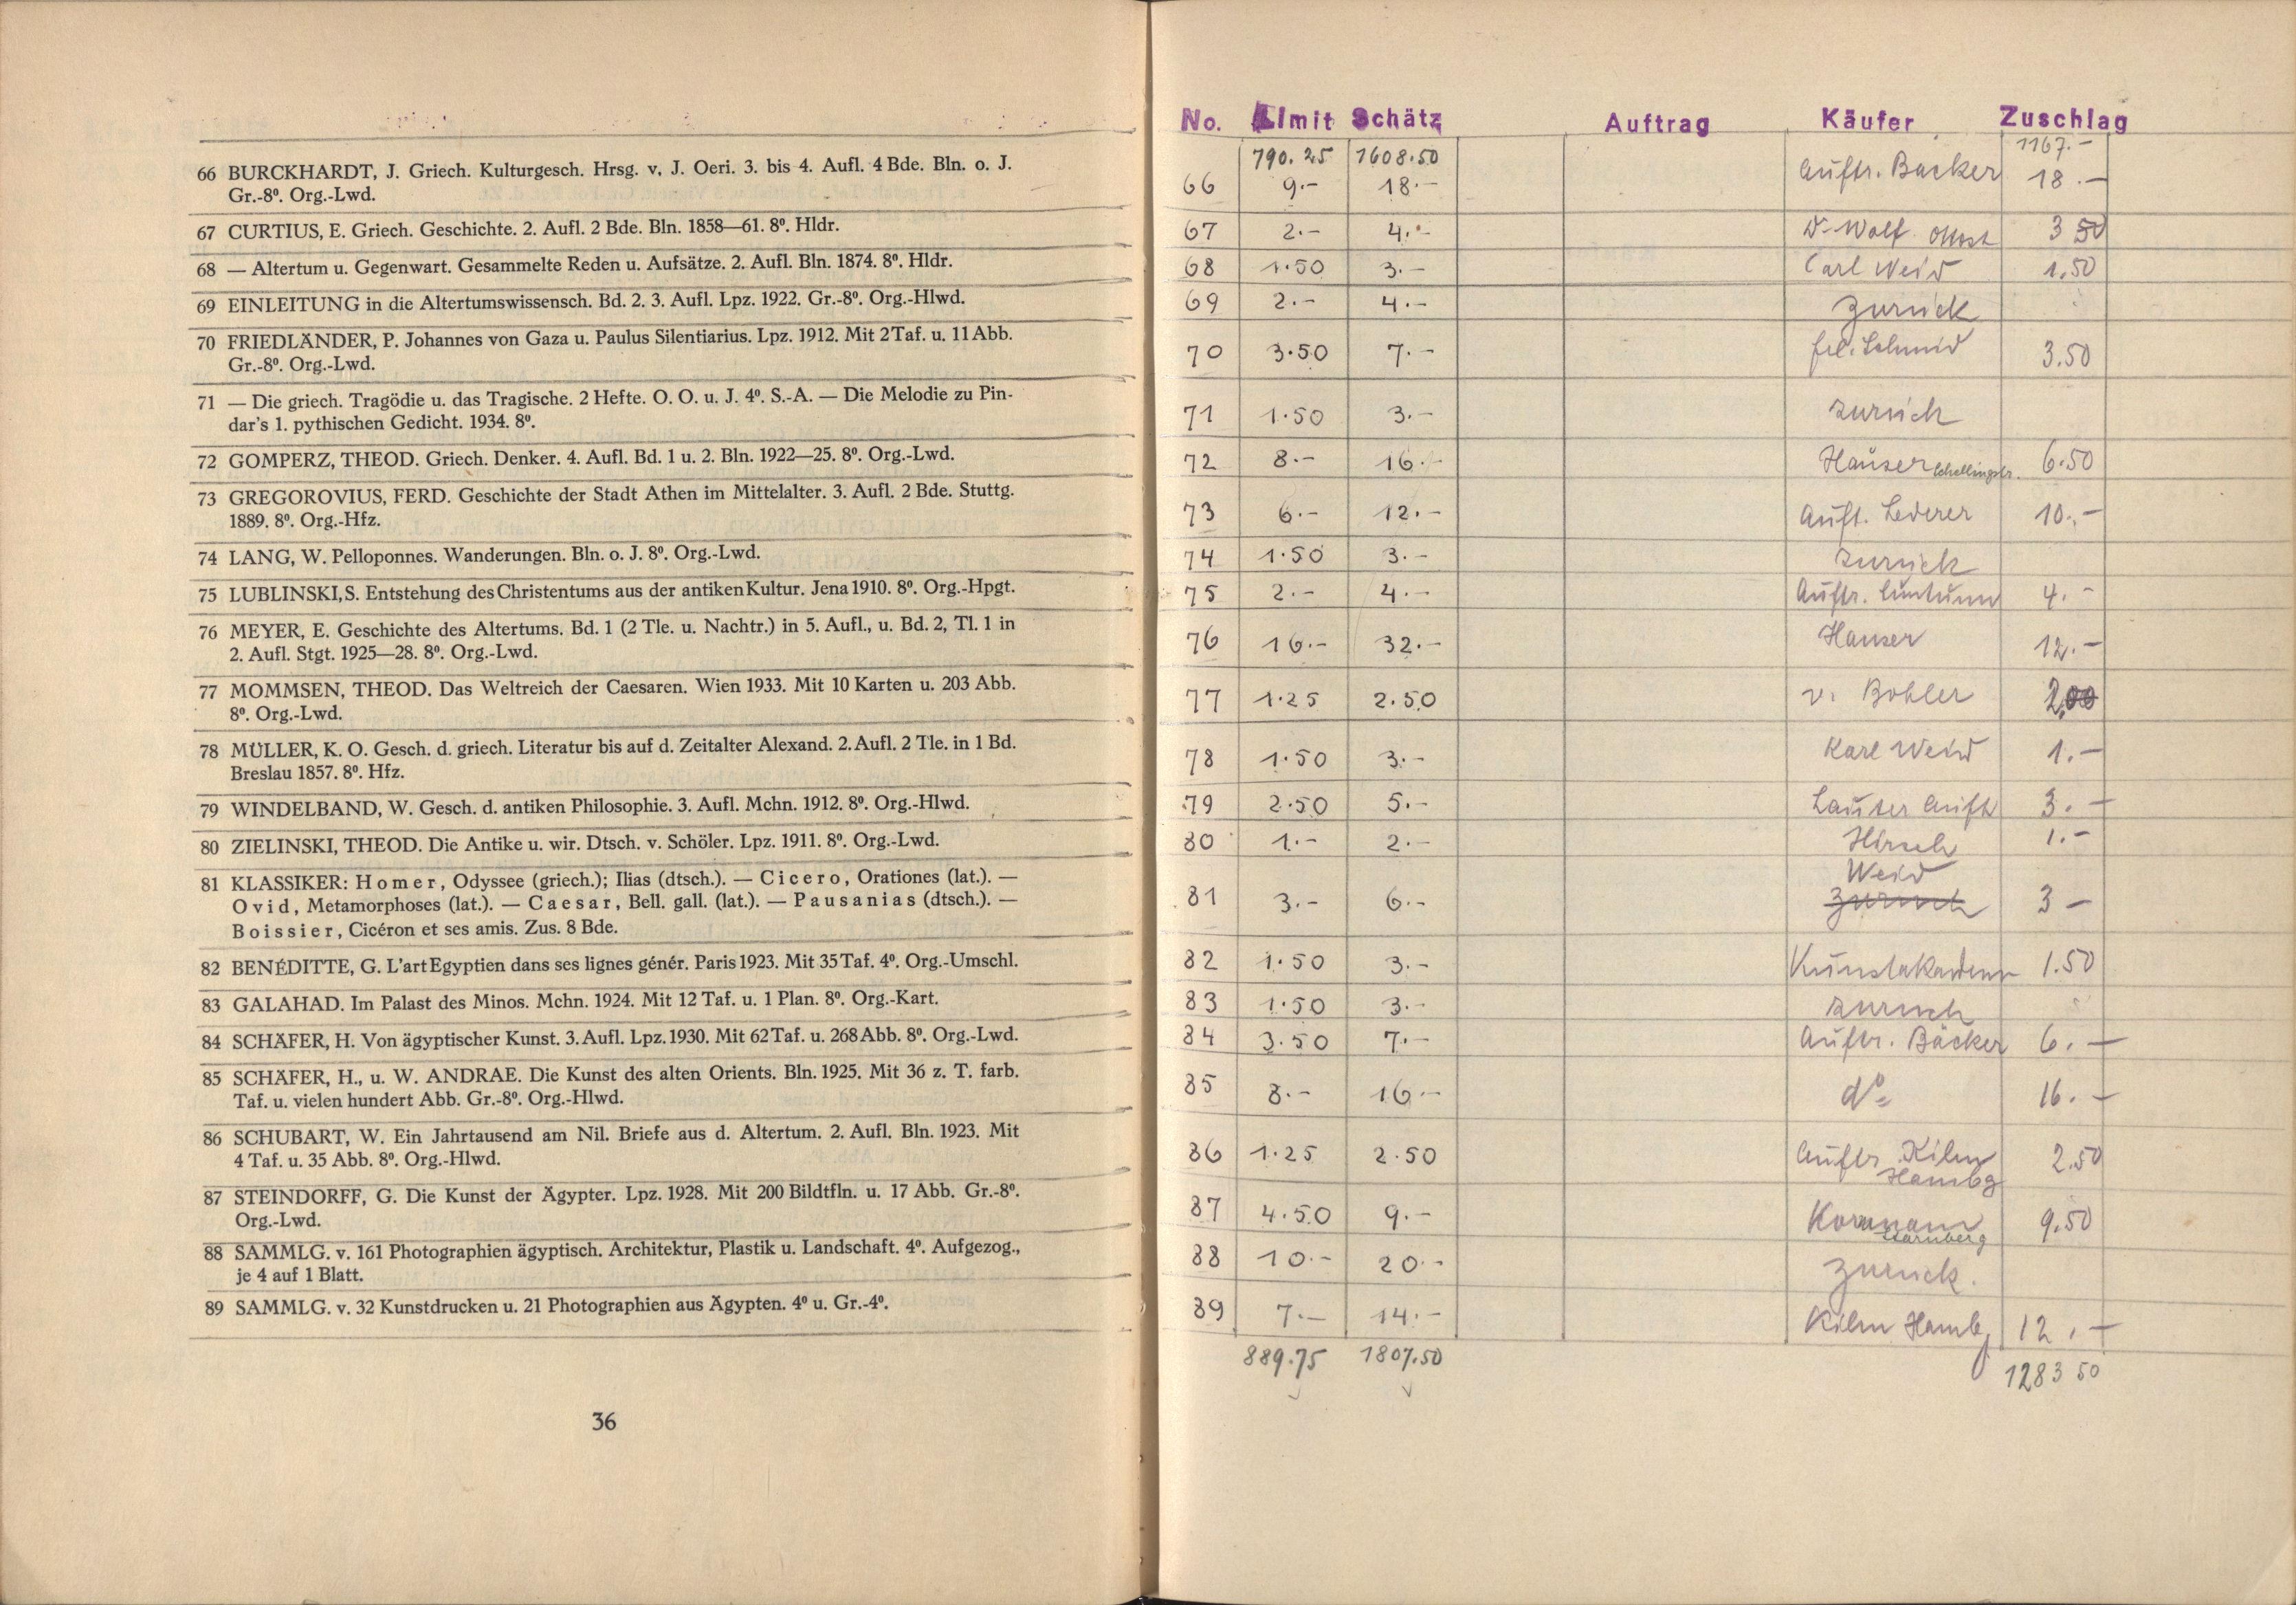 66 BURCKHARDT, J. Griech. Kulturgesch. Hrsg. v. J. Oeri. 3. bis 4. Aufl. 4 Bde. Bln. o. J.
Gr.-8º. Org.-Lwd.
67 CURTIUS, E. Griech. Geschichte. 2. Aufl. 2 Bde. Bln. 1858—61. 8º. Hldr.
68 — Altertum u. Gegenwart. Gesammelte Reden u. Aufsätze. 2. Aufl. Bln. 1874. 8º. Hldr.
69 EINLEITUNG in die Altertumswissensch. Bd. 2. 3. Aufl. Lpz. 1922. Gr.-8º. Org.-Hlwd.
70 FRIEDLÄNDER, P. Johannes von Gaza u. Paulus Silentiarius. Lpz. 1912. Mit 2 Taf. u. 11 Abb.
Gr.-8º. Org.-Lwd.
71 — Die griech. Tragödie u. das Tragische. 2 Hefte. O. O. u. J. 4º. S.-A. — Die Melodie zu Pin-
dar's 1. pythischen Gedicht. 1934. 8º.
72 GOMPERZ, THEOD. Griech. Denker. 4. Aufl. Bd. 1 u. 2. Bln. 1922—25. 8º. Org.-Lwd.
73 GREGOROVIUS, FERD. Geschichte der Stadt Athen im Mittelalter. 3. Aufl. 2 Bde. Stuttg.
1889. 8º. Org.-Hfz.
74 LANG, W. Pelloponnes. Wanderungen. Bln. o. J. 8º. Org.-Lwd.
75 LUBLINSKI, S. Entstehung des Christentums aus der antiken Kultur. Jena 1910. 8º. Org.-Hpgt.
76 MEYER, E. Geschichte des Altertums. Bd. 1 (2 Tle. u. Nachtr.) in 5. Aufl., u. Bd. 2, Tl. 1 in
2. Aufl. Stgt. 1925—28. 8º. Org.-Lwd.
77 MOMMSEN, THEOD. Das Weltreich der Caesaren. Wien 1933. Mit 10 Karten u. 203 Abb.
8º. Org.-Lwd.
78 MÜLLER, K. O. Gesch. d. griech. Literatur bis auf d. Zeitalter Alexand. 2. Aufl. 2 Tle. in 1 Bd.
Breslau 1857. 8º. Hfz.
79 WINDELBAND, W. Gesch. d. antiken Philosophie. 3. Aufl. Mchn. 1912. 8º. Org.-Hlwd.
80 ZIELINSKI, THEOD. Die Antike u. wir. Dtsch. v. Schöler. Lpz. 1911. 8º. Org.-Lwd.
81 KLASSIKER: Homer, Odyssee (griech.); Ilias (dtsch.). — Cicero, Orationes (lat.). —
Ovid, Metamorphoses (lat.). — Caesar, Bell. gall. (lat.). — Pausanias (dtsch.). —
Boissier, Cicéron et ses amis. Zus. 8 Bde.
82 BENÉDITTE, G. L'art Egyptien dans ses lignes génér. Paris 1923. Mit 35 Taf. 4º. Org.-Umschl.
83 GALAHAD. Im Palast des Minos. Mchn. 1924. Mit 12 Taf. u. 1 Plan. 8º. Org.-Kart.
84 SCHÄFER, H. Von ägyptischer Kunst. 3. Aufl. Lpz. 1930. Mit 62 Taf. u. 268 Abb. 8º. Org.-Lwd.
85 SCHÄFER, H., u. W. ANDRAE. Die Kunst des alten Orients. Bln. 1925. Mit 36 z. T. farb.
Taf. u. vielen hundert Abb. Gr.-8º. Org.-Hlwd.
86 SCHUBART, W. Ein Jahrtausend am Nil. Briefe aus d. Altertum. 2. Aufl. Bln. 1923. Mit
4 Taf. u. 35 Abb. 8º. Org.-Hlwd.
87 STEINDORFF, G. Die Kunst der Ägypter. Lpz. 1928. Mit 200 Bildtfln. u. 17 Abb. Gr.-8º.
Org.-Lwd.
88 SAMMLG. v. 161 Photographien ägyptisch. Architektur, Plastik u. Landschaft. 4º. Aufgezog.,
je 4 auf 1 Blatt.
89 SAMMLG. v. 32 Kunstdrucken u. 21 Photographien aus Ägypten. 4º u. Gr.-4º.
36
No. Limit Schätz Auftrag Käufer Zuschlag
790.25 1608.50 1167.-
66 9.- 18.- Auftr. Backer 18.-
67 2.- 4.- Wolf 3 50
68 1.50 3.- Carl Weid 1.50
69 2.- 4.- zurück
70 3.50 7.- Frl. Schmid 3.50
71 1.50 3.- zurück
72 8.- 16.- Hauser Schellingstr. 6.50
73 6.- 12.- Auft. Lederer 10.-
74 1.50 3.- zurück
75 2.- 4.- Auftr. 4.-
76 16.- 32.- Hauser 12.-
77 1.25 2.50 v. Bohler 2,00
78 1.50 3.- Karl Weid 1.-
79 2.50 5.- Lauter Auft 3.-
80 1.- 2.- Hirsch 1.-
Weid
81 3.- 6.- zurück 3 -
82 1.50 3.- 1.50
83 1.50 3.- zurück
84 3.50 7.- Auftr. Bäcker 6.-
85 8.- 16.- dº 16.-
86 1.25 2.50 Auftr. Kilm 2.50
Hambg
87 4.50 9.- 9.50
Starnberg
88 10.- 20.- zurück.
89 7.- 14.- Kilm Hamb. 12.-
889.75 1807.50 1283 50